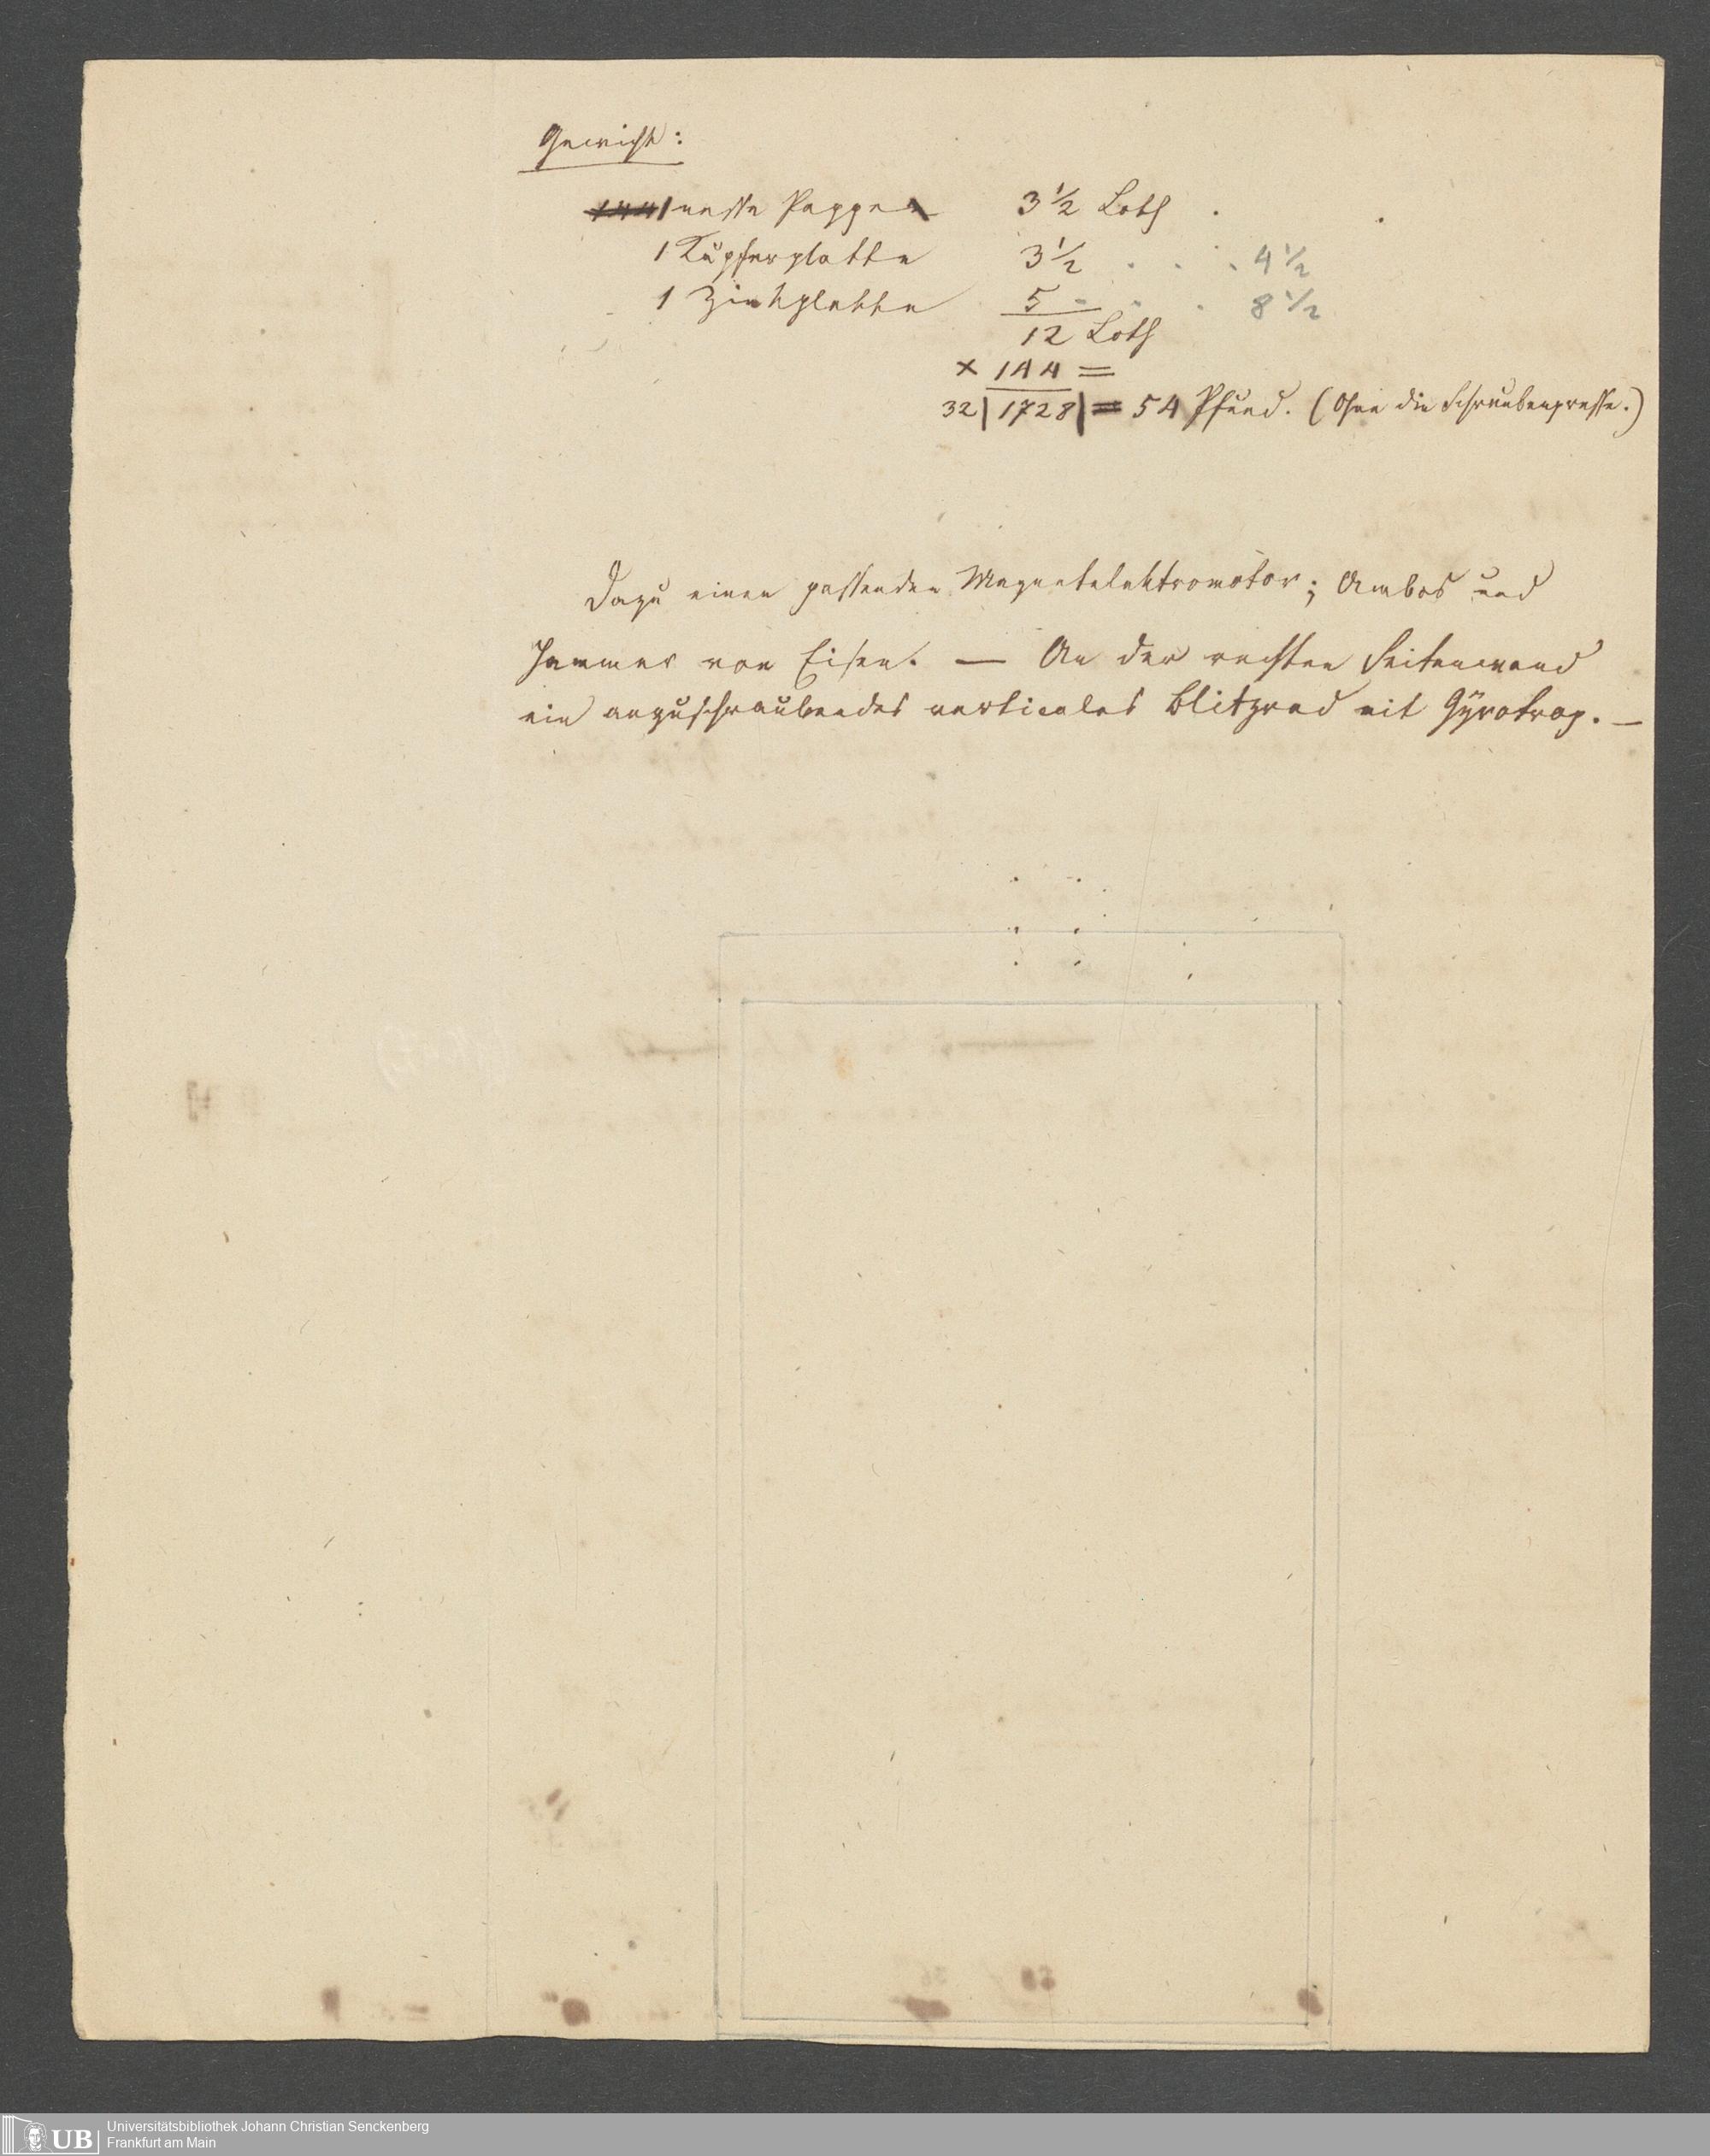 Gewicht:
144 1 nasse Pappe 3 1/2 Loth .
1 Kupferplatte 3 1/2 . . . 4 1/2
1 Zinkplatte 5 - . . 8 1/2
12 Loth
x 144 =
32 | 1728 | = 54 Pfund. (Ohne die Schraubenpresse.)
Dazu einen passenden Magnetelektromotor; Ambos und
Hammer von Eisen. — An der rechten Seitenwand
ein anzuschraubendes verticales Blitzrad mit Gyrotrop. —
UB
Universitätsbibliothek Johann Christian Senckenberg
Frankfurt am Main